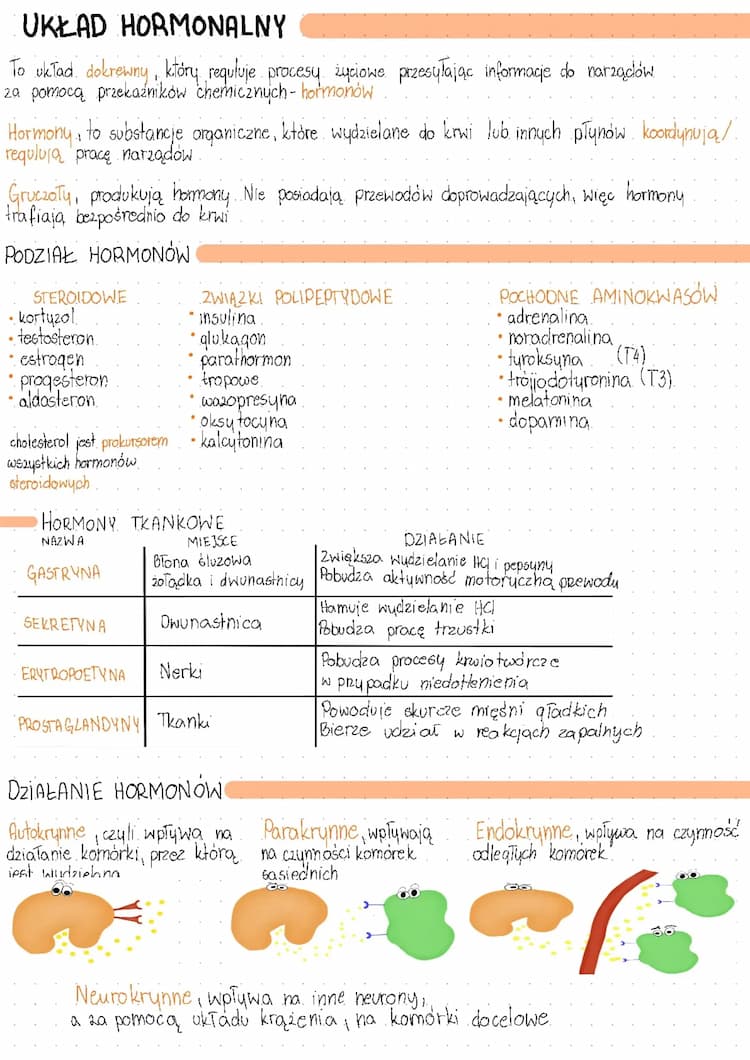 UKŁAD HORMONALNY
To układ dokrewny, który reguluje procesy życiowe przesyłając informacje do narządów
za pomocą przekaźników chemicznych - hormonów
Hormony, to substancje organiczne, które wydzielane do krwi lub innych płynów koordynują/
regulują pracę narządów
Gruczoły, produkują hormony. Nie posiadają przewodów doprowadzających, więc hormony
trafiają bezpośrednio do krwi
PODZIAŁ HORMONÓW
STEROIDOWE
• kortyzol
• testosteron
• estrogen
• progesteron
• aldosteron
cholesterol jest prekursorem
wszystkich hormonów
steroidowych
ZWIĄZKI POLIPEPTYDOWE
• insulina
• glukagon
• parathormon
• tropowe
• wazopresyna
• oksytocyna
• kalcytonina
POCHODNE AMINOKWASÓW
• adrenalina
• noradrenalina
• tyroksyna (T4)
• trójjodotyronina (T3)
• melatonina
• dopamina
HORMONY TKANKOWE
NAZWA MIEJSCE DZIAŁANIE
GASTRYNA
Błona śluzowa
żołądka i dwunastnicy
Zwiększa wydzielanie HCl i pepsyny
Pobudza aktywność motoryczną przewodu
SEKRETYNA
Dwunastnica
Hamuje wydzielanie HCl
Pobudza pracę trzustki
ERYTROPOETYNA
Nerki
Pobudza procesy krwiotwórcze
w przypadku niedotlenienia
PROSTAGLANDYNY
Tkanki
Powoduje skurcze mięśni gładkich
Bierze udział w reakcjach zapalnych
DZIAŁANIE HORMONÓW
Autokrynne, czyli wpływa na
działanie komórki, przez którą
jest wydzielana
Parakrynne, wpływają
na czynności komórek
sąsiednich
Endokrynne, wpływa na czynność
odległych komórek
Neurokrynne, wpływa na inne neurony,
a za pomocą układu krążenia, na komórki docelowe